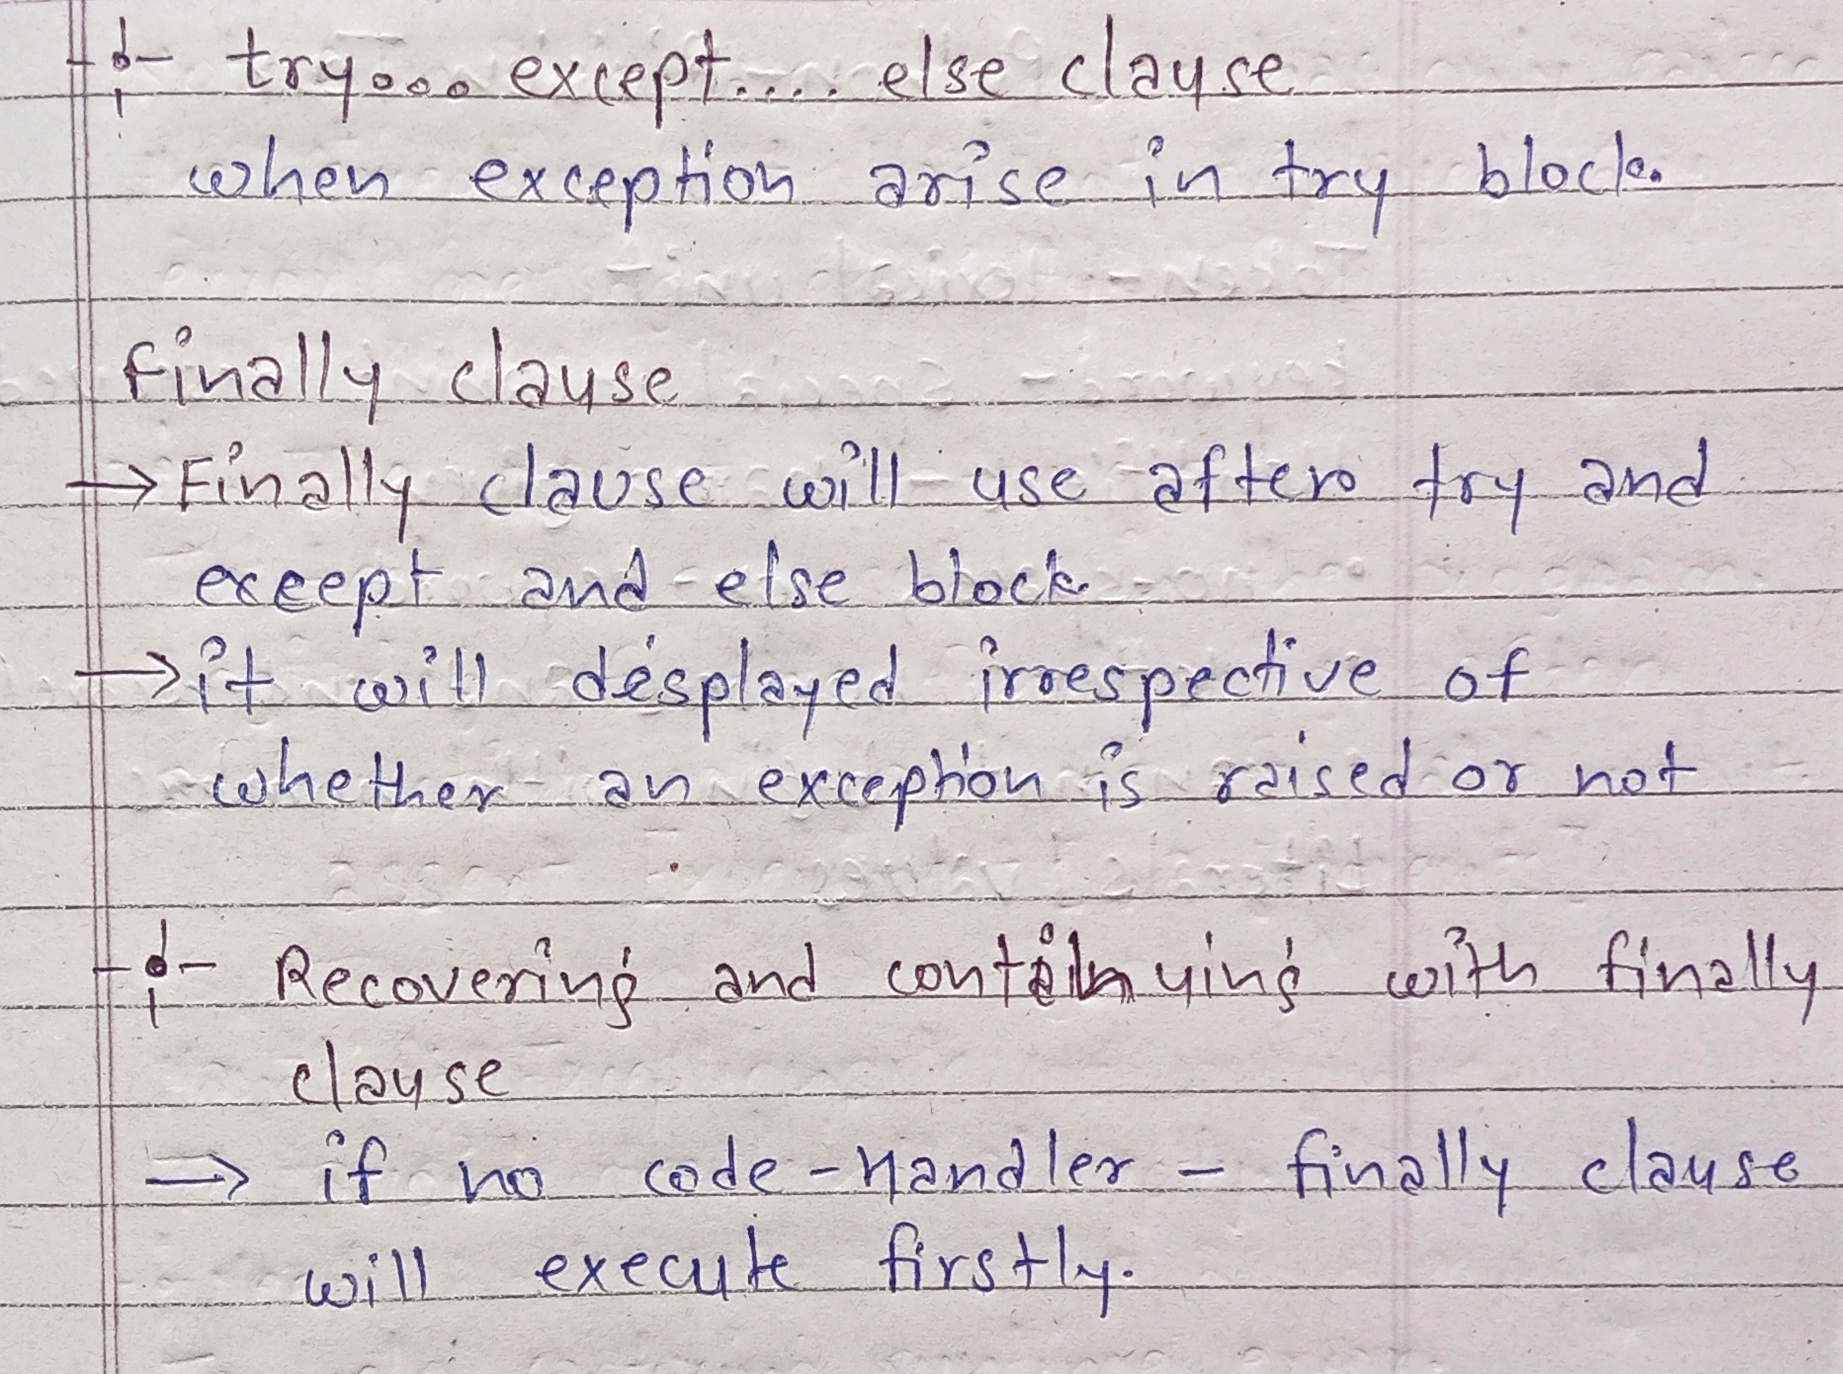 try... except..... else clause
when exception arise in try block.
finally clause
→ Finally clause will use after try and
except and else block.
→ it will desplayed irrespective of
whether an exception is raised or not
Recovering and continuying with finally
clause
→ if no code-Handler - finally clause
will execute firstly.